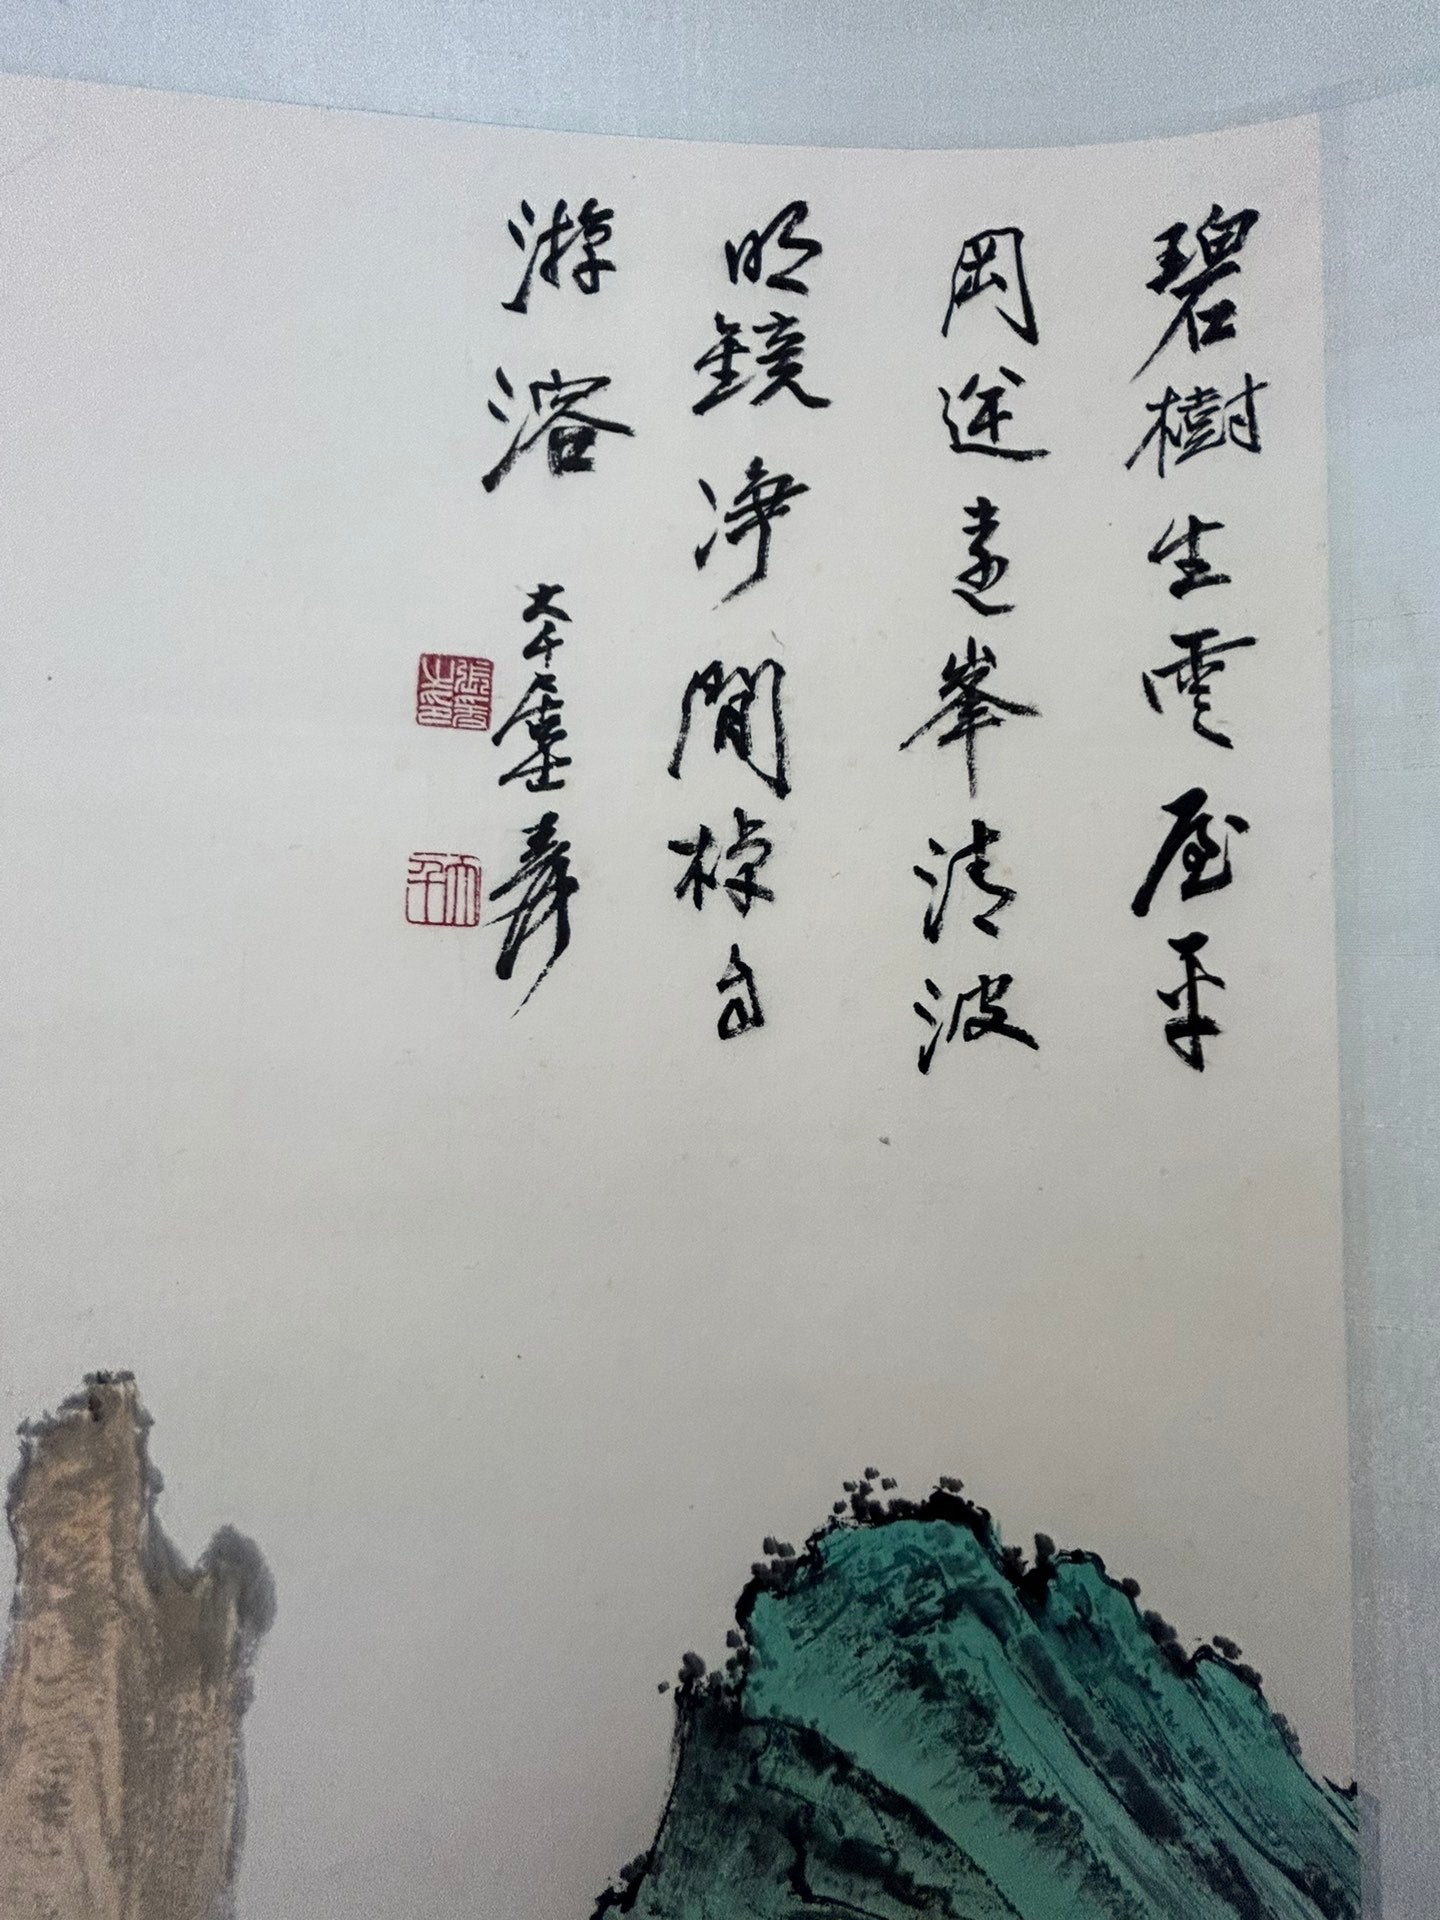 碧樹生雲屋平
岡送遠峯清波
明鏡淨閒棹自
游溶
大千居士爰
張爰之印
大千